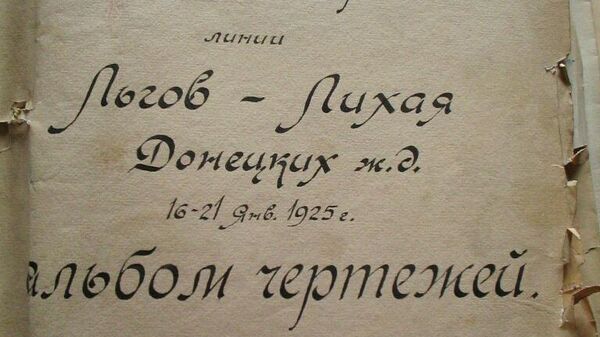 линии
Льгов - Лихая
Донецких ж.д.
16-21 Янв. 1925 г.
альбом чертежей.